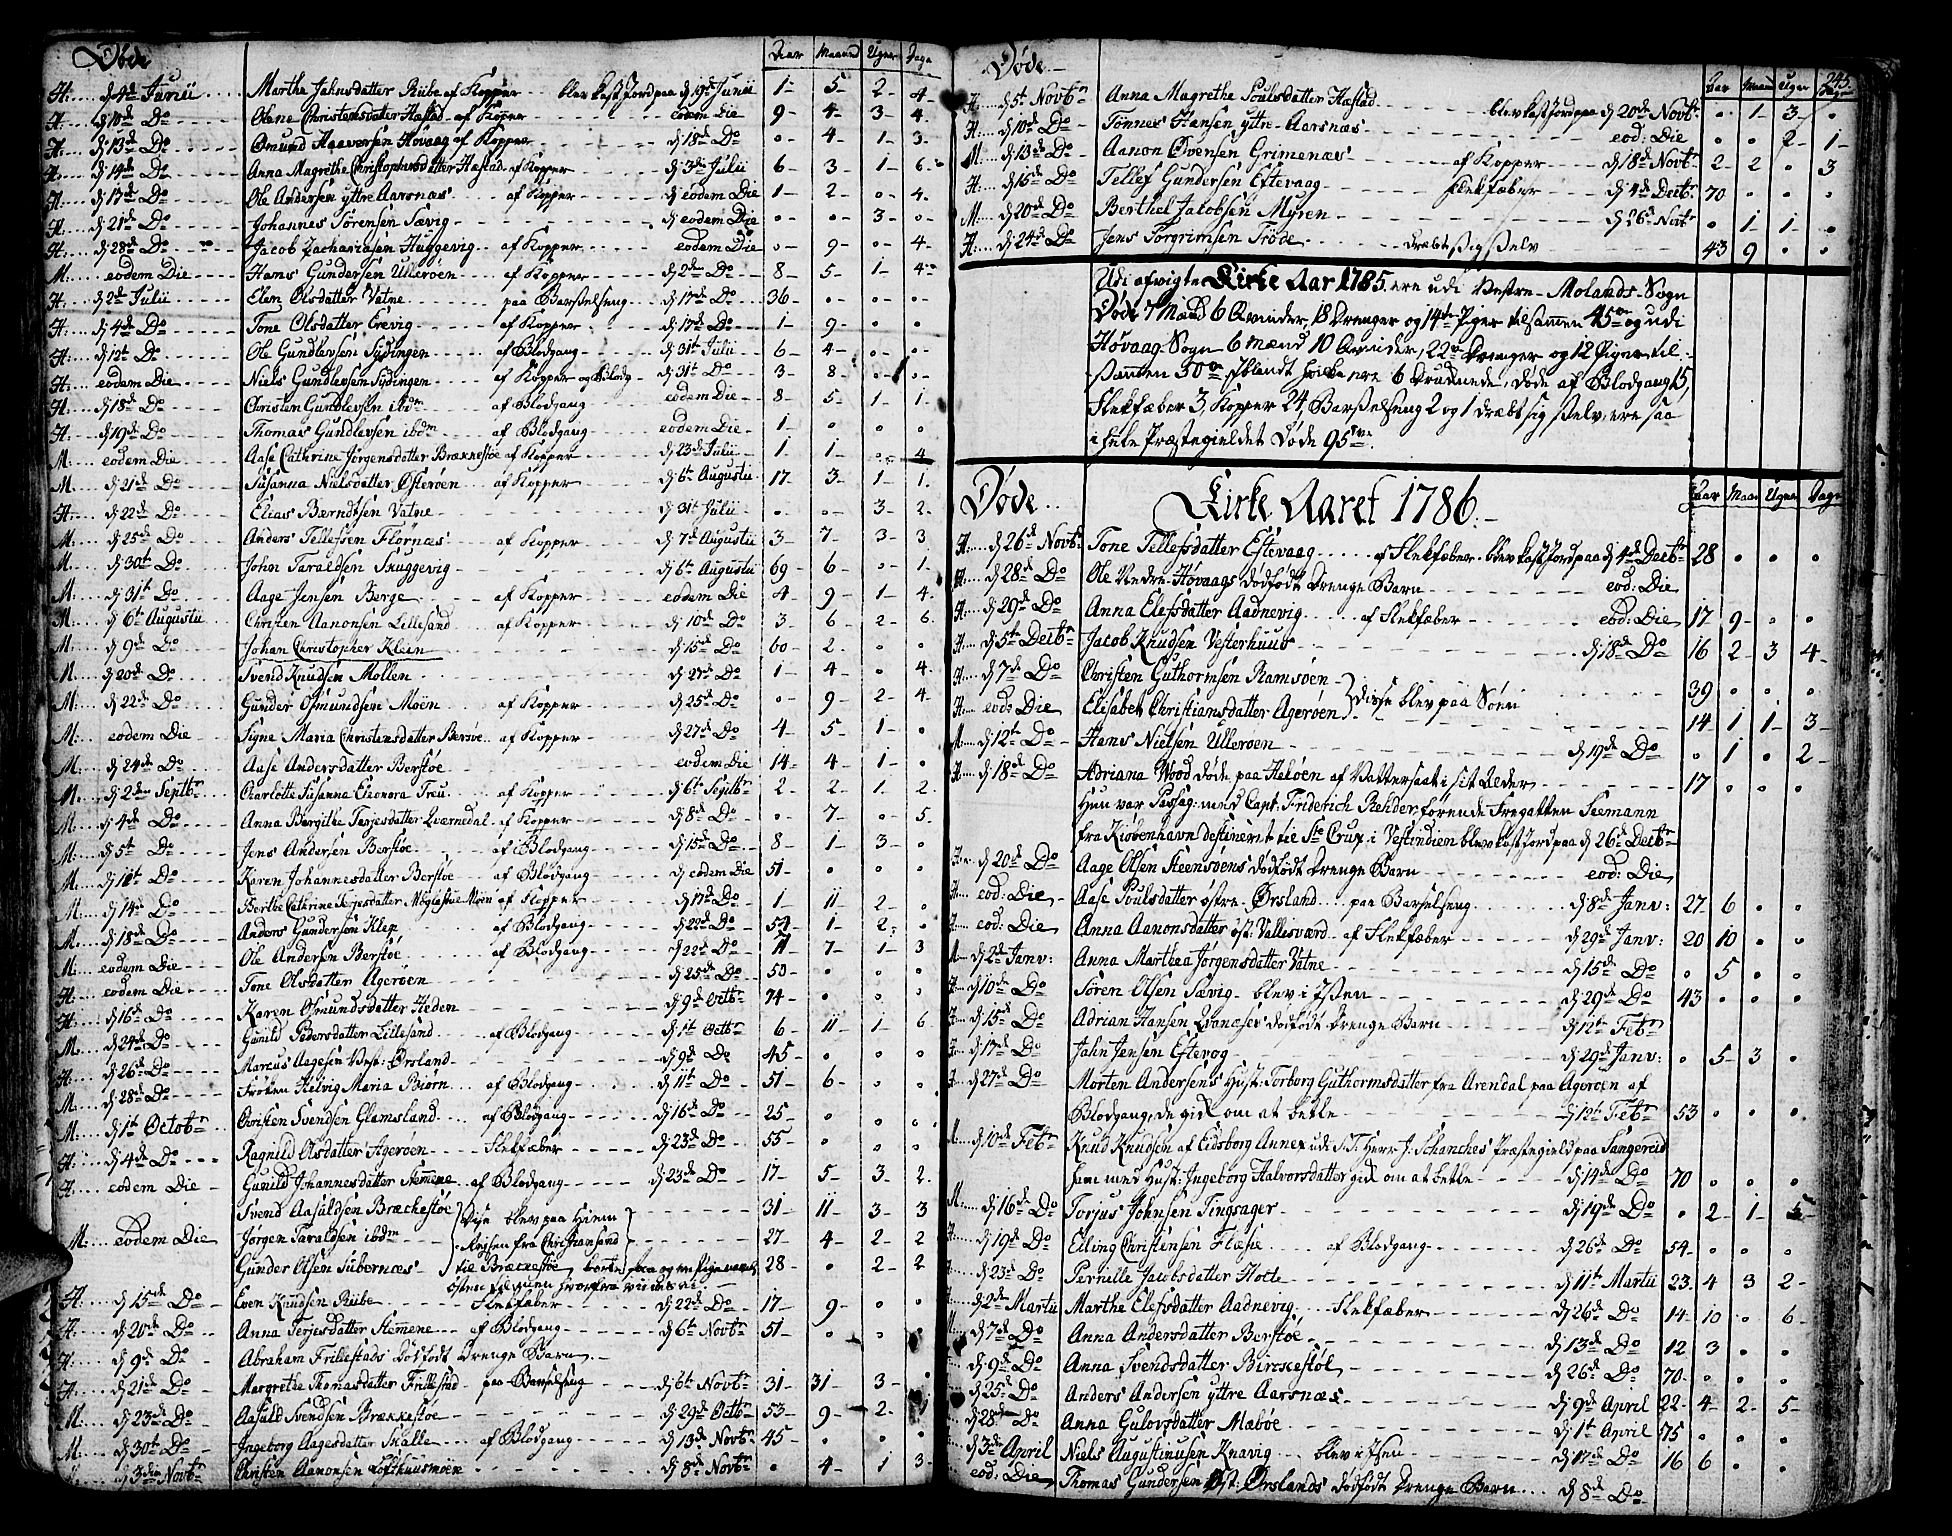 Døde
Aar Maaned Uger Dage
H: d 4de Junii Marthe Jahnsdatter Ribe af Kopper blev kast Jord paa d 19de Junii 1 - 5 - 2 - 4
H: d 10de Do Olene Christensdatter Hæstad af Kopper eodem Die 9 - 4 - 3 - 4
H: d 13de Do Osmund Haaversen Høvaag af Kopper d 18de Do 0 - 4 - 1 - 3
H: d 14de Do Anna Magrethe Christophersdatter Hæstad af Kopper d 3de Julii 6 - 3 - 1 - 6
H: d 17de Do Ole Andersen yttre Aarsnæs af Kopper d eodem Die 1 - 2 - 0 - 4
H: d 21de Do Johannes Sørensen Sævig d eodem Die 0 - 0 - 3 - 0
H: d 28de Do Jacob Zachariasen Huggevig af Kopper eodem Die 0 - 9 - 0 - 4
M: eodem Die Hans Gundersen Ulleröen af Kopper d 2den Do 8 - 5 - 1 - 4
H: d 2de Julii Elen Olsdatter Vatne paa Barselseng d 17de Do 36 - 0 - 0 - 0
H: d 4de Do Tone Olsdatter Erevig af Kopper d 17de Do 1 - 9 - 0 - 0
H: d 13t Do Ole Gundlevsen Sydingen af Blodgang d 31t Julii 6 - 4 - 0 - 0
H: eodem Die Niels Gundlevsen Sydingen af Kopper og Blodg d 31t Do 3 - 8 - 0 - 1
H: d 18de Do Christen Gundlevsen ibdm af Blodgang eodem Die 8 - 5 - 1 - 1
H: d 19de Do Thomas Gundlevsen ibdm af Blodgang eodem Die 1 - 0 - 0 - 0
M: eodem Die Aase Cathrine Jørgensdatter Brækkestøe af Kopper d 23de Julii 1 - 1 - 0 - 4
M: d 21de Do Susanna Nielsdatter Østerøen af Kopper d 6te Augustii 17 - 3 - 1 - 1
H: d 22de Do Elias Berndtsen Vatne d 31t Julii 0 - 0 - 3 - 2
M: d 25de Do Anders Tellefsen Flörnæs af Kopper d 7de Augustii 3 - 7 - 3 - 3
M: d 30te Do John Taraldsen Skuggevig d 6te Augustii 69 - 6 - 0 - 1
M: d 31te Do Aage Jensen Berge af Kopper eodem Die 4 - 9 - 1 - 4
M: d 6te Augustii Christen Aanonsen Lillesand af Kopper d 10de Do 3 - 6 - 2 - 6
M: d 9de Do Johan Christopher Klein d 15de Do 60 - 2 - 0 - 0
M: d 20de Do Svend Knudsen Mollen d 27de Do 1 - 4 - 0 - 4
M: d 22de Do Gunder Osmundsen Moën af Kopper d 25de Do 0 - 9 - 2 - 4
M: eodem Die Signe Maria Christensdatter Berstøe af Kopper d 27de Do 4 - 5 - 1 - 0
M: d 24de Do Aase Andersdatter Berstøe eodem Die 14 - 4 - 1 - 0
M: d 2den Septbr Charlotte Susanna Elenora Treu af Kopper d 6te Septbr 2 - 2 - 1 - 2
M: d 4de Do Anna Bergithe Terjesdatter Qværnedal af Kopper d 8de Do 0 - 7 - 0 - 5
M: d 5te Do Jens Andersen Berstøe af Blodgang d 15de Do 8 - 1 - 3 - 0
M: d 11te Do Karen Johannesdatter Berstøe af Blodgang d eodem Die 51 - 0 - 0 - 0
M: d 14de Do Berthe Cathrine Terjesdatter Møglestue Moen af Kopper d 17de Do 1 - 11 - 2 - 0
M: d 18de Do Anders Gundersen Klep af Blodgang d 22de Do 54 - 1 - 2 - 0
M: eodem Die Ole Andersen Berstøe af Blodgang d 22de Do 11 - 7 - 1 - 3
H: eodem Die Tone Olsdatter Agerøen d 25de Do 50 - 0 - 0 - 0
H: d 16de Do Karen Osmundsdatter Heden d 9de Octbr 74 - 0 - 0 - 0
M: d 24de Do Gunild Pedersdatter Lillesand af Blodgang d 1te Octbr 6 - 11 - 1 - 6
H: d 26de Do Marcus Aagesen Vest: Ørsland d 9de Do 45 - 0 - 0 - 0
M: d 28de Do Frøken Helvig Maria Biørn af Blodgang d 11te Do 51 - 6 - 0 - 0
M: d 1te Octobr Christen Svendsen Glamsland af Blodgang d 16de Do 25 - 0 - 0 - 0
H: d 4de Do Ragnild Olsdatter Agerøen Flekfæber d 23de Do 55 - 0 - 0 - 0
H: eodem Die Gunild Johannesdatter Hemene af Blodgang d 23de Do 17 - 5 - 3 - 2
Svend Aasuldsen Brækkestøe 31 - 11 - 3 - 3
M: eodem Die Jørgen Taraldsen ibdm Disse blev paa Hiem Reysen fra Christiansand 27 - 4 - 2 - 2
Gunder Olsen Suberncæs til Brækkestøe borte 28 - 0 - 2 - 2
H: d 15de Do Even Knudsen Ribe Flekfæber d 22de Do 17 - 9 - 0 - 0
H: d 20de Do Anna Terjesdatter Hemene af Blodgang d 6te Novbr 51 - 0 - 0 - 0
H: d 9de Do Abraham Frillestads dødfødt Drenge Barn
H: d 21de Do Margrethe Thomasdatter Frillestad paa Barselseng d 6te Novbr 31 - 31 - 3 - 0
M: d 23de Do Aasuld Svendsen Brækkestøe d 29de Octbr 53 - 9 - 2 -
M: d 30te Do Ingeborg Aagesdatter Skalle af Blodgang d 13de Novbr 45 - 0 - 0
d 3die Novbr Christen Aanonsen Lofthuusmoen d 8de Novbr 0 - 4 - 1 - 3
Døde 245.
Aar Maan Uger Dage
H: d 5t Novbr Anna Magrethe Poulsdatter Hæstad blev kast Jord paa d 20de Novbr 0 - 1 - 3 - 0
H: d 10de Do Tønnes Hansen yttre Aarsnæs eod: Die 0 0 2 - 1
M: d 13de Do Aanon Evensen Grimenæs af Kopper d 18de Novbr 2 - 2 - 0 3
H: d 15de Do Tellef Gundersen Eftevaag Flekfæber d 4de Decbr 70 0 0 0
M: d 20de Do Berthel Jacobsen Myren d 26de Novbr 0 1 - 1 - 0
H: d 24de Do Jens Torgrimsen Trøde dræbt sig selv 43 9 0 0
Udi afvigte Kirke Aar 1785 ere udi Vestre-Molands-Sogn
Døde 7 Mænd 6 Qvinder, 18 Drenger og 14ten Piger tilsammen 45 og udi
Høvaag Sogn 6 Mænd 10 Qvinder, 22 Drenger og 12 Piger til-
sammen 50 iblandt hvilke ere 6 Druknede, Døde af Blodgang 15,
Flekfæber 3, Kopper 24, Barselseng 2 og 1 dræbt sig selv, ere saa
i hele Præstegieldet Døde 95
Døde Kirke Aaret 1786. Aar Maan Uger Dage
H: d 26de Novbr Tone Tellefsdatter Eftevaag af Flekfæber blev kast Jord paa d 4de Decbr 28 0 0 0
H: d 28de Do Ole Nedre-Høvaags dødfødt Drenge Barn eod: Die
H: d 29de Do Anna Elefsdatter Aadnevig af Flekfæber eod: Die 17 9 - 0 0
H: d 5te Decbr Jacob Knudsen Vesterhuus d 18de Do 16 2 3 4
H: d 7de Do Christen Guthormsen Ramsøen 39 0 0 0
H: eod: Die Elisabet Christiansdatter Agerøen Disse blev paa Søen 14 1 1 - 3
M: d 12te Do Hans Nielsen Ulleroen d 19de Do 0 1 0 2
H: d 18de Do Adriana Wood døde paa Hekøen af Vattersaat i sit Alder 17 0 0 0
Hun var Passag: med Capt: Friderich Rehder førende Fregatten Seemann
fra Kiøbenhavn destineret til Ste Crux i Vestindien blev kast Jord paa d 26de Decbr
H: d 20de Do Aage Olsen Steensøens dødfødt Drenge Barn eod: Die
H: eod: Die Aase Poulsdatter østre Ørsland paa Barselseng d 8de Janv: 27 6 0 0
eod: Die Anna Aanonsdatter øst: Vallesværd af Flekfæber d 29de Janv: 20 10 0 0
d 2de Janv: Anna Marthea Jørgensdatter Vatne d 15de Do 0 5 0 0
d 10de Do Søren Olsen Sævig blev i Isen d 29de Do 43 0 0 0
d 15de Do Adrian Hansen Qvanæses dødfødt Drenge Barn d 12te Febr
d 17de Do Jahn Jensen Eftevog d 29de Janv: 0 5 3 0
d 27de Do Morten Andersens Hust: Torborg Guthormsdatter fra Arendal paa Agerøen af
Blodgang, de gik om at betle d 12te Febr 53 0 0 0
d 10de Febr Knud Knudsen af Eidsborg Annex udi S.T. Herr J: Schanches Præstegield paa Sangereid
ham med Hust: Ingeborg Halvorsdatter gik om at betle d 14de Do 70 0 0 0
M: d 16de Do Torjus Johnsen Tingsager d 19de Do 0 2 - 1 - 5
d 19de Do Elling Christensen Flæsie af Blodgang d 26de Do 54 0 0 0
d 23de Do Pernille Jacobsdatter Holte d 11te Martii 23 4 3 2
d 2de Martii Marthe Elefsdatter Aadnevig Flekfæber d 26de Do 14 10 0 6
d 7de Do Anna Andersdatter Berstøe d 13de Do 12 3 0 0
d 9de Do Anna Svendsdatter Birckestøl d 26de Do 70 0 0 0
d 25de Do Anders Andersen yttre Aarsnæs d 9de April 22 4 2 5
d 28de Do Anna Gulovsdatter Mæbøe d 1te April 75 0 0 0
d 3de April Niels Augustinusen Knavig blev i Isen d 17de Do 16 6 0 0
eod: Die Thomas Gundersen Øst: Ørslands dødfødt Drenge Barn d 8de Do